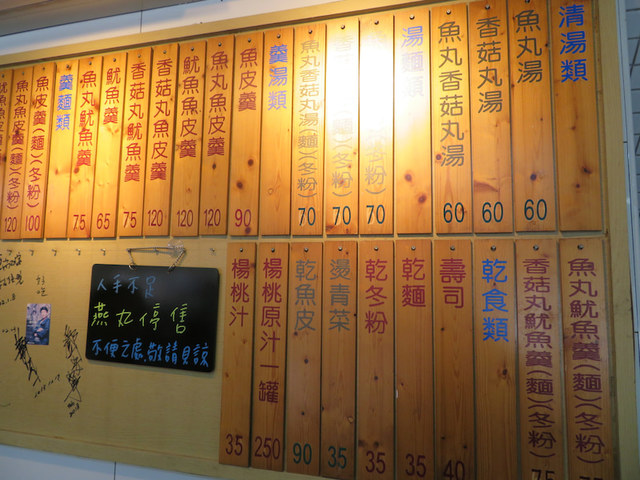 清湯類
魚丸湯 60
香菇丸湯 60
魚丸香菇丸湯 60
湯麵類
粉) 70
70
魚丸香菇丸湯(麵)(冬粉) 70
羹湯類
魚皮羹 90
魚丸魚皮羹 120
魷魚魚皮羹 120
香菇丸魚皮羹 120
香菇丸魷魚羹 75
魷魚羹 65
魚丸魷魚羹 75
羹麵類
魚皮羹(麵)(冬粉) 100
魚丸魚皮羹(麵)(冬粉) 120
魚丸魷魚羹(麵)(冬粉) 75
香菇丸魷魚羹(麵)(冬粉) 75
乾食類
壽司 40
乾麵 35
乾冬粉 35
燙青菜 35
乾魚皮 90
楊桃原汁一罐 250
楊桃汁 35
人手不足
燕丸停售
不便之處,敬請見諒